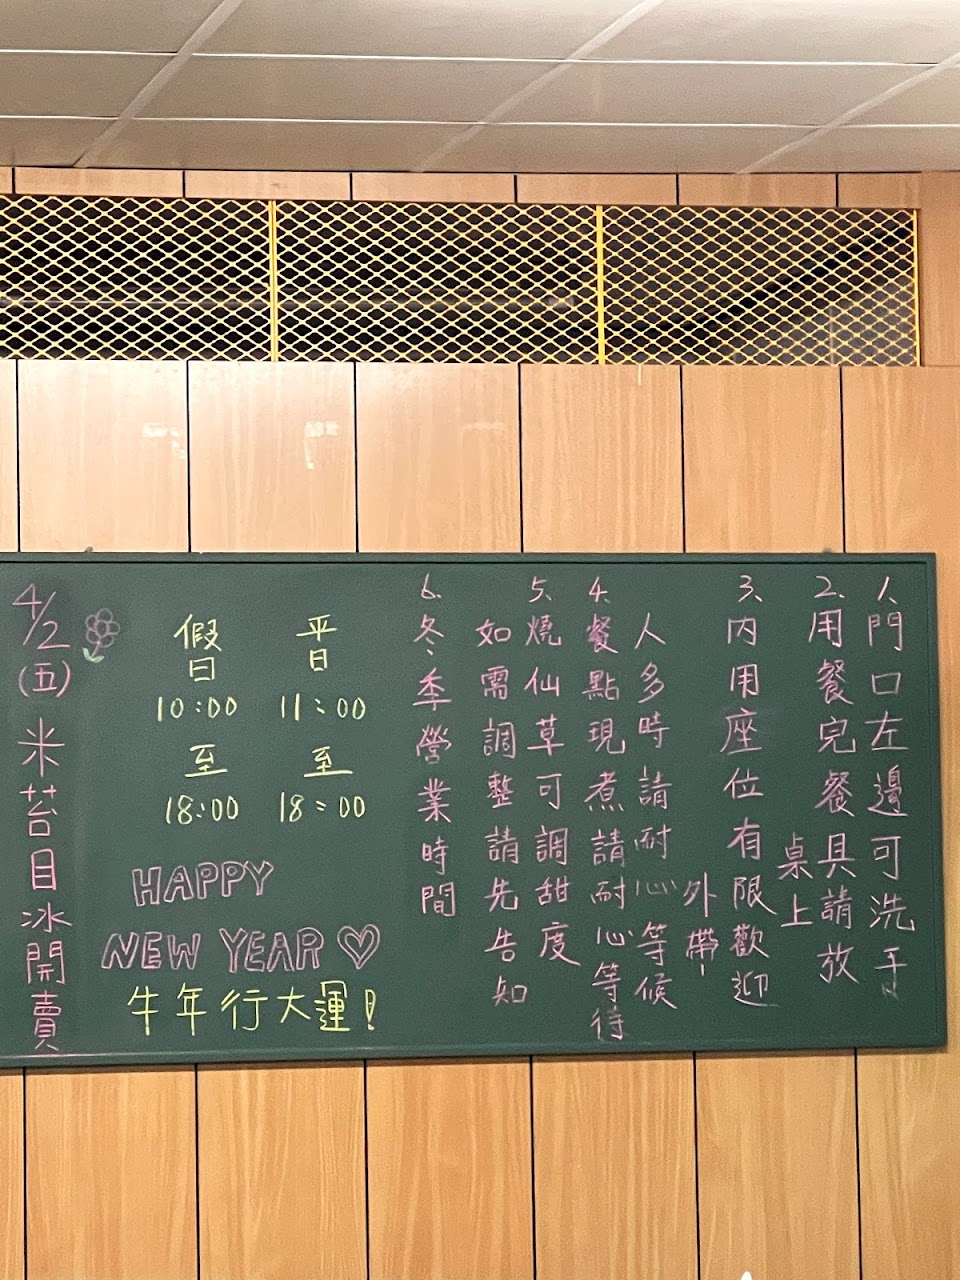 1、門口左邊可洗手
2、用餐完餐具請放
桌上
3、內用座位有限歡迎
外帶
人多時請耐心等候
4、餐點現煮請耐心等待
5、燒仙草可調甜度
如需調整請先告知
6、冬季營業時間
平日
11:00
至
18:00
假日
10:00
至
18:00
HAPPY
NEW YEAR♡
牛年行大運!
4/2(五)米苔目冰開賣